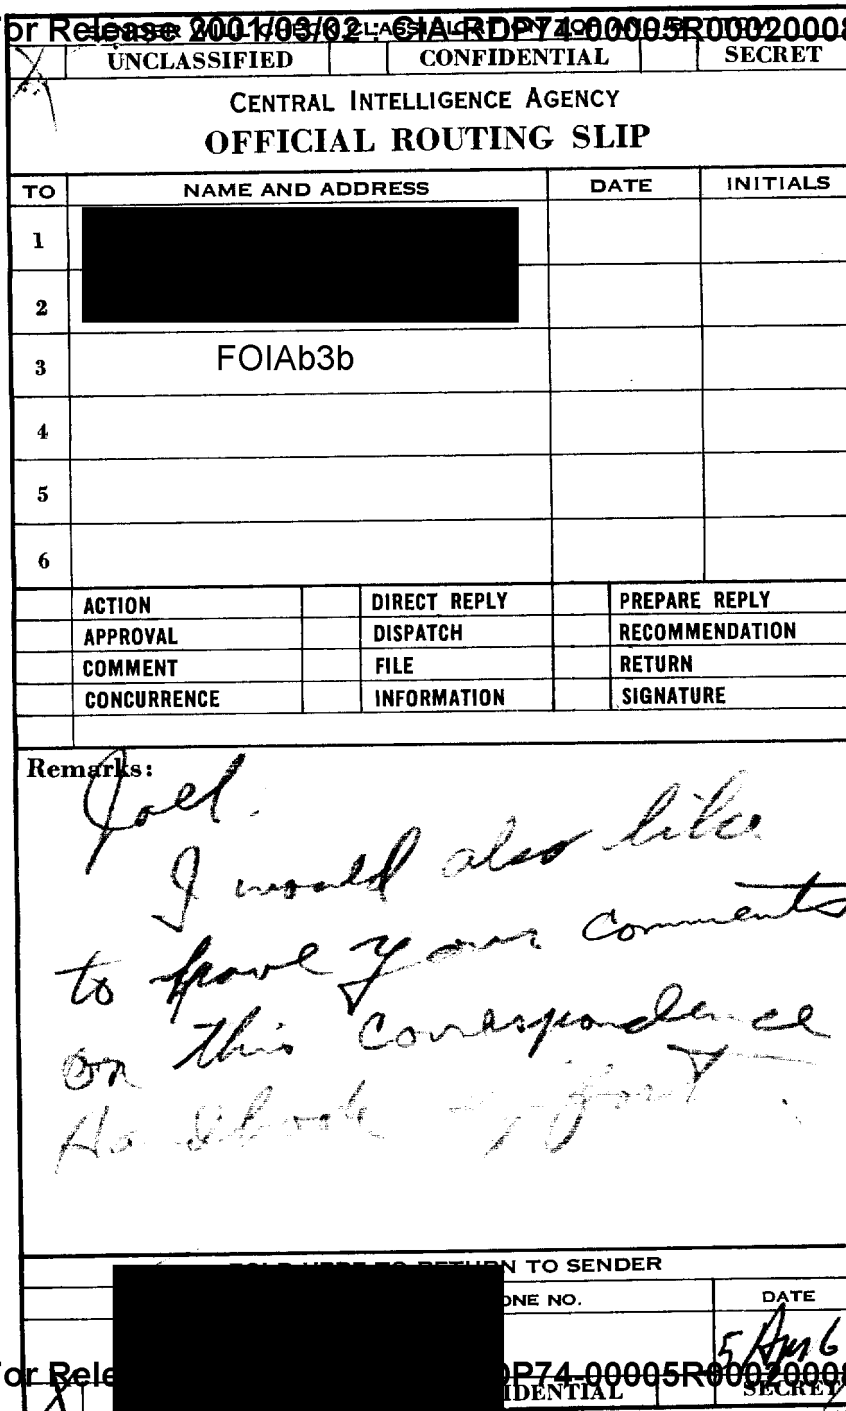 or Release 2001/03/02 : CIA-RDP74-00005R00020008
UNCLASSIFIED CONFIDENTIAL SECRET
CENTRAL INTELLIGENCE AGENCY
OFFICIAL ROUTING SLIP
TO NAME AND ADDRESS DATE INITIALS
1
2
3 FOIAb3b
4
5
6
ACTION DIRECT REPLY PREPARE REPLY
APPROVAL DISPATCH RECOMMENDATION
COMMENT FILE RETURN
CONCURRENCE INFORMATION SIGNATURE
Remarks:
I would also like
to have your comments
on this correspondence
Handbook effort.
TO SENDER
ONE NO. DATE
5 Apr 6
or Rele DP74-00005R00020008
IDENTIAL SECRET